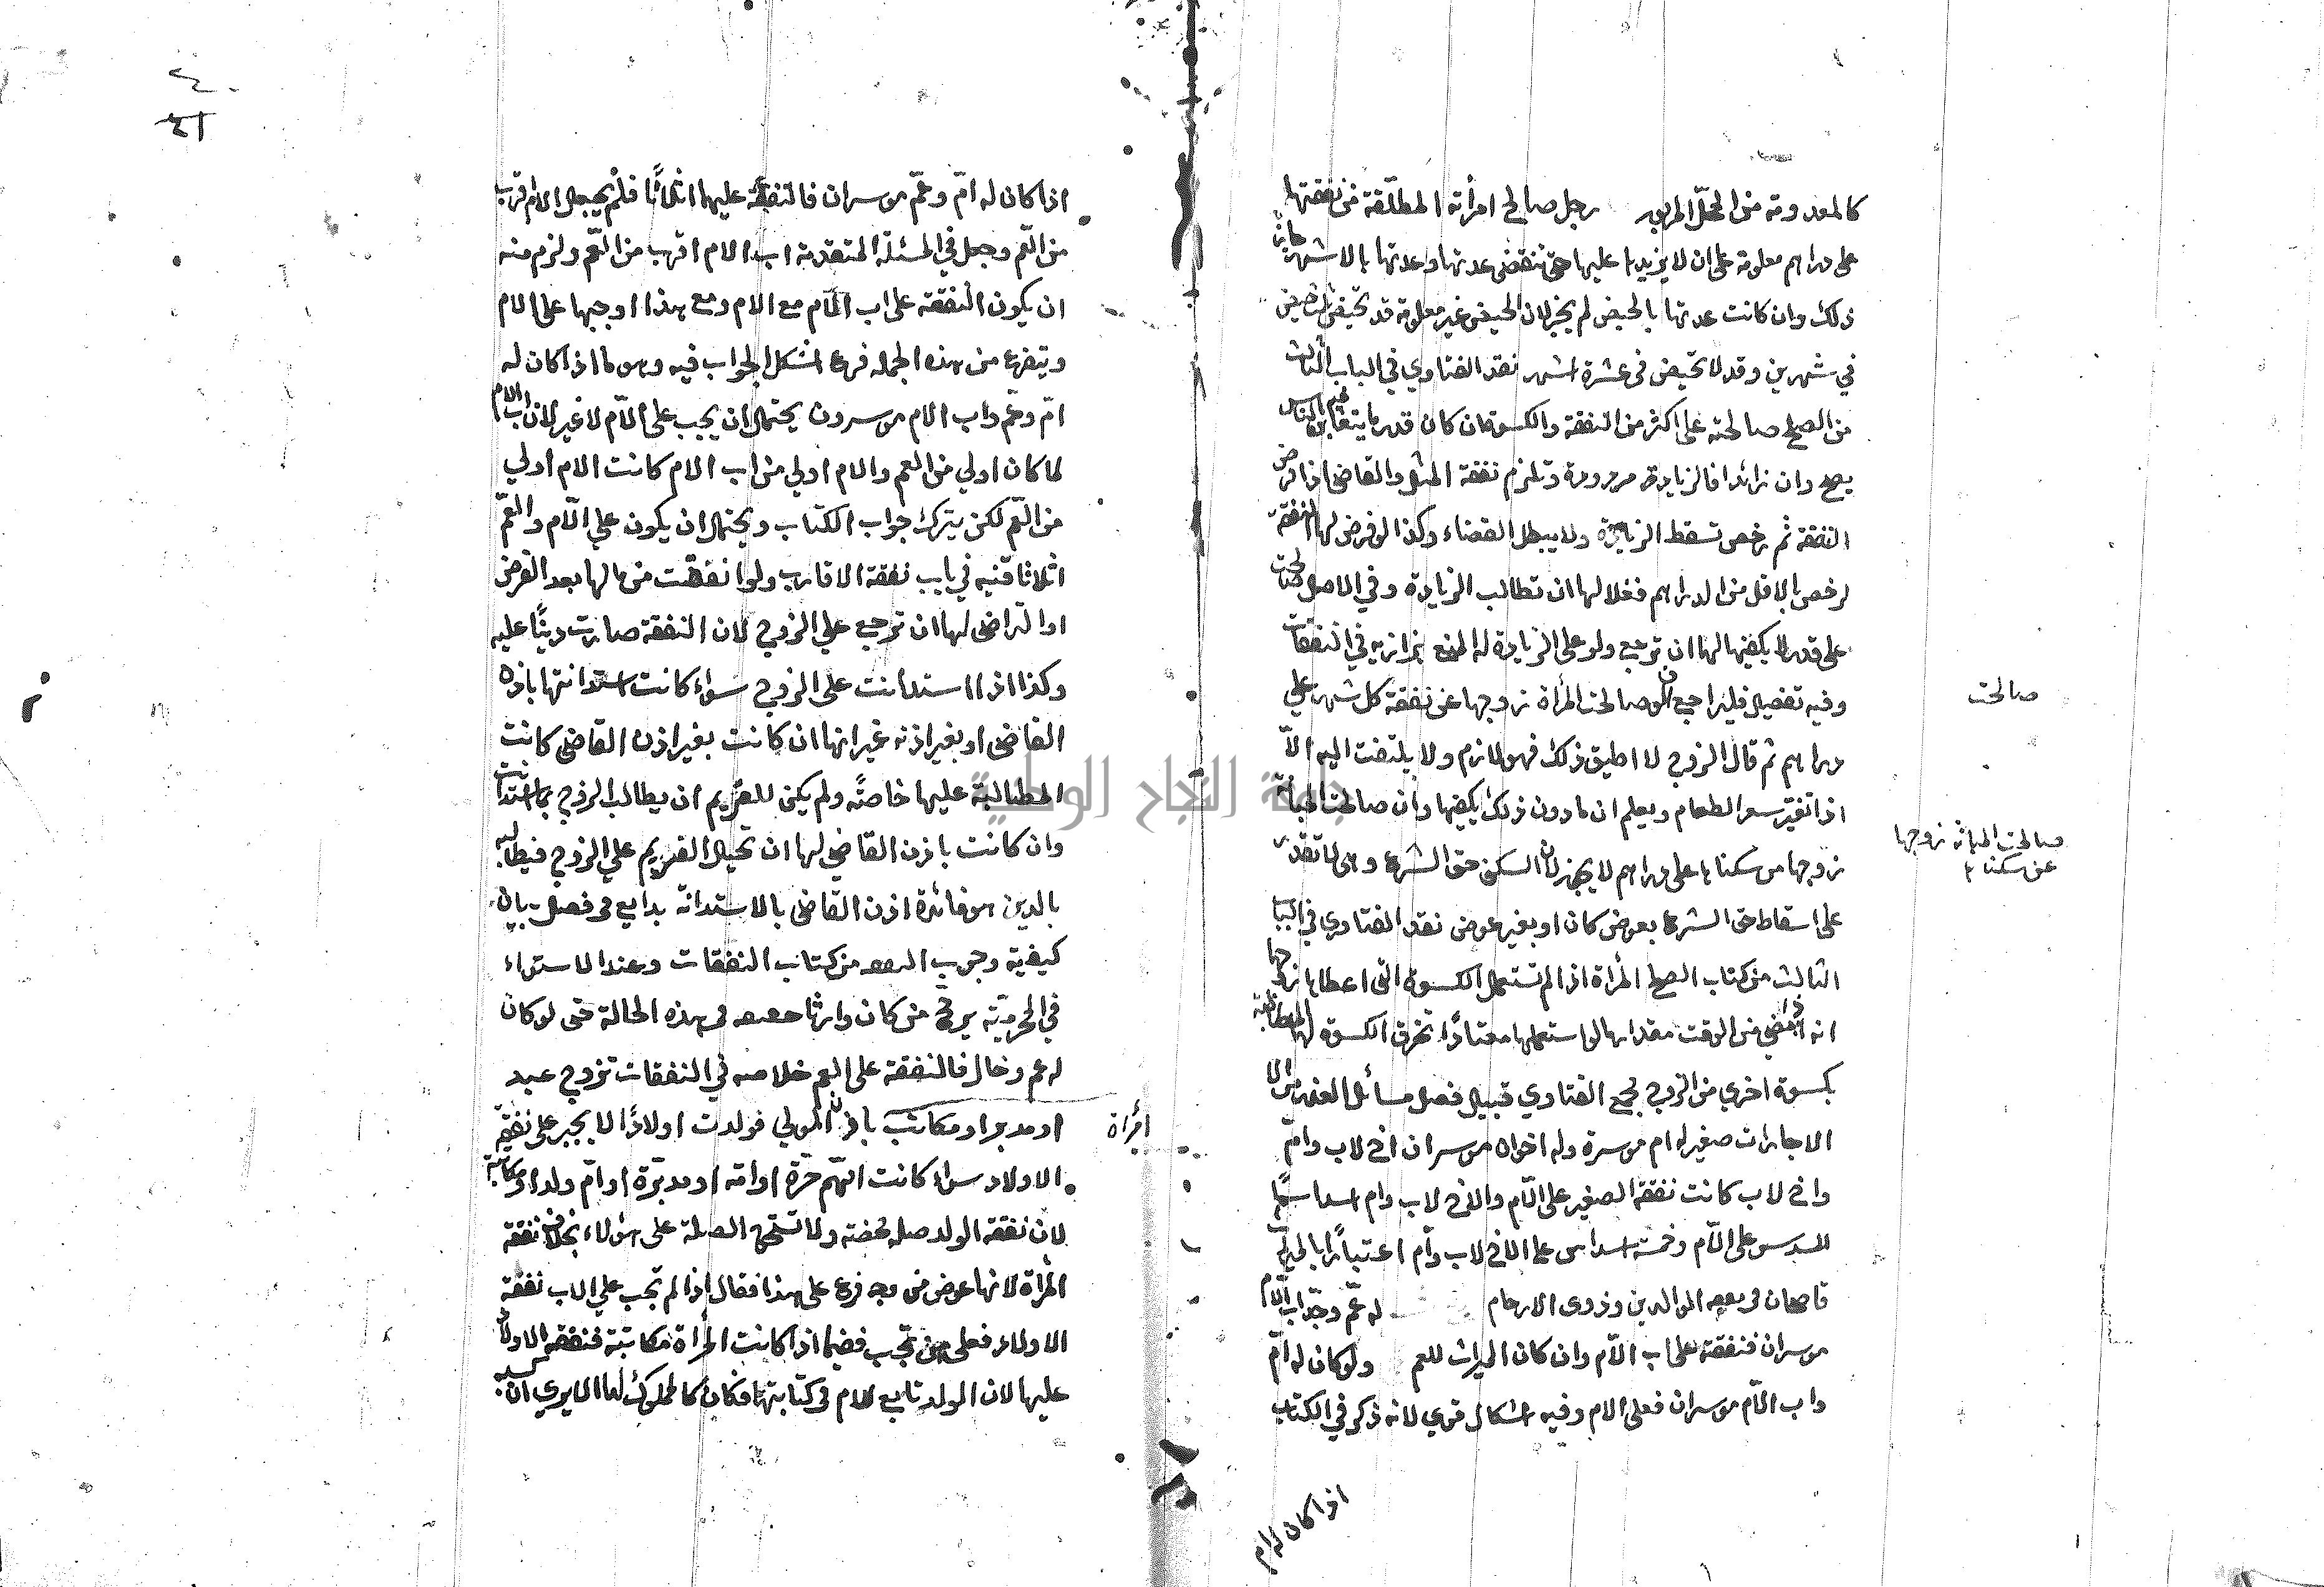 كالمعدومة من المحل المزبور رجل صالح امرأته المطلقة من نفقتها
على دراهم معلومة على ان لا يزيدها عليها حتى تنقضي عدتها وعدتها بالاشهر جاز
ذلك وان كانت عدتها بالحيض لم يجز لان الحيض غير معلومة قد تحيض ثلث حيض
في شهرين وقد لا تحيض في عشرة اشهر نقد الفتاوي في الباب الثالث
من الصلح صالحته على اكثر من النفقة والكسوة ان كان قدر ما يتغابن فيه الناس
يصح وان زائدا فالزيادة مردودة وتلزم نفقة المثل والقاضي اذا فرض
النفقة ثم رخص تسقط الزيادة ولا يبطل القضاء وكذا لو فرض لها النفقة
لرخص بالاقل من الدراهم فغلا لها ان تطالب الزيادة وفي الاصل صالحت
على قدر لا يكفيها لها ان ترجع ولو على الزيادة له المنع بزازيه في النفقات
وفيه تفصيل فليراجع لو صالحت المرأة زوجها عن نفقة كل شهر على
دراهم ثم قال الزوج لا اطيق ذلك فهو لازم ولا يلتفت اليه الا
اذا تغير سعر الطعام ويعلم ان ما دون ذلك يكفيها وان صالحت المبانة
زوجها من سكناها على دراهم لا يجوز لان السكنى حق الشرع وهي لا تقدر
على اسقاط حق الشرع بعوض كان او بغير عوض نقد الفتاوي في الباب
الثالث من كتاب الصلح المرأة اذا لم تستعمل الكسوة التي اعطاها زوجها
انه اذا مضى من الوقت مقدار ما لو استعملها معتادًا تخرق الكسوة لها المطالبة
بكسوة اخري من الزوج مجمع الفتاوي قبيل فصل مسائل العذر من
الاجارات صغير له ام موسرة وله اخوان موسران اخ لاب وامّ
واخ لاب كانت نفقة الصغير على الام والاخ لاب وام اسداسًا
السدس على الام وخمسة اسداس على الاخ لاب وام اعتبارًا بالميراث
قاضيخان في نفقة الوالدين وذوى الارحام له عمّ وجدّ اب الام
موسران فنفقته على اب الام وان كان الميراث للعم ولو كان له امّ
واب الام موسران فعلى الام وفيه اشكال قوي لانه ذكر في الكتاب
اذا كان له ام
صالحت
صالحت المبانة زوجها
عن سكناها
اذا كان له امّ وعمّ موسران فالنفقة عليهما اثلاثًا فلم يجعل الام اقرب
من العم وجعل في المسئلة المتقدمة اب الام اقرب من العم ولزم منه
ان يكون النفقة على اب الام مع الام ومع هذا اوجبها على الام
ويتفرع من هذه الجملة فرع اشكل الجواب فيه وهو ما اذا كان له
امّ وعمّ واب الام موسرون يحتمل ان يجب على الام لا غير لان اب الام
لما كان اولي من العم والام اولي من اب الام كانت الام اولي
من العم لكن يترك جواب الكتاب ويحتمل ان يكون علي الام والعم
اثلاثا قنيه في باب نفقة الاقارب ولو انفقت من مالها بعد الفرض
او التراضي لها ان ترجع على الزوج لان النفقة صارت دينًا عليه
وكذا اذا استدانت على الزوج سواء كانت استدانتها باذن
القاضي او بغير اذنه غير انها ان كانت بغير اذن القاضي كانت
المطالبة عليها خاصّة ولم يكن للغريم ان يطالب الزوج بما استدانت
وان كانت باذن القاضي لها ان تحيل الغريم علي الزوج فيطالبه
بالدين هو فائدة اذن القاضي بالاستدانة بدايع في فصل بيان
كيفية وجوب النفقة من كتاب النفقات وعند الاستواء
في المحرمية يرجح من كان وارثا حقيقة في هذه الحالة حتى لو كان
له عم وخال فالنفقة على العم خلاصه في النفقات تزوج عبد
او مدبر او مكاتب باذن المولي فولدت اولادًا لا يجبر على نفقة
امرأة
الاولاد سواء كانت امّهم حرّة او امة او مدبّرة او امّ ولد او مكاتبة
لان نفقة الولد صلة محضة ولا تستحق الصلة على هؤلاء بخلاف نفقة
المرأة لانها عوض من وجه فرع على هذا فقال اذا لم تجب علي الاب نفقة
الاولاد فعلى من تجب ففيما اذا كانت المرأة مكاتبة فنفقة الاولاد
عليها لان الولد تابع للام في كتابتها فكان كالمملوك لها الا يري ان
جامعة النجاح الوطنية